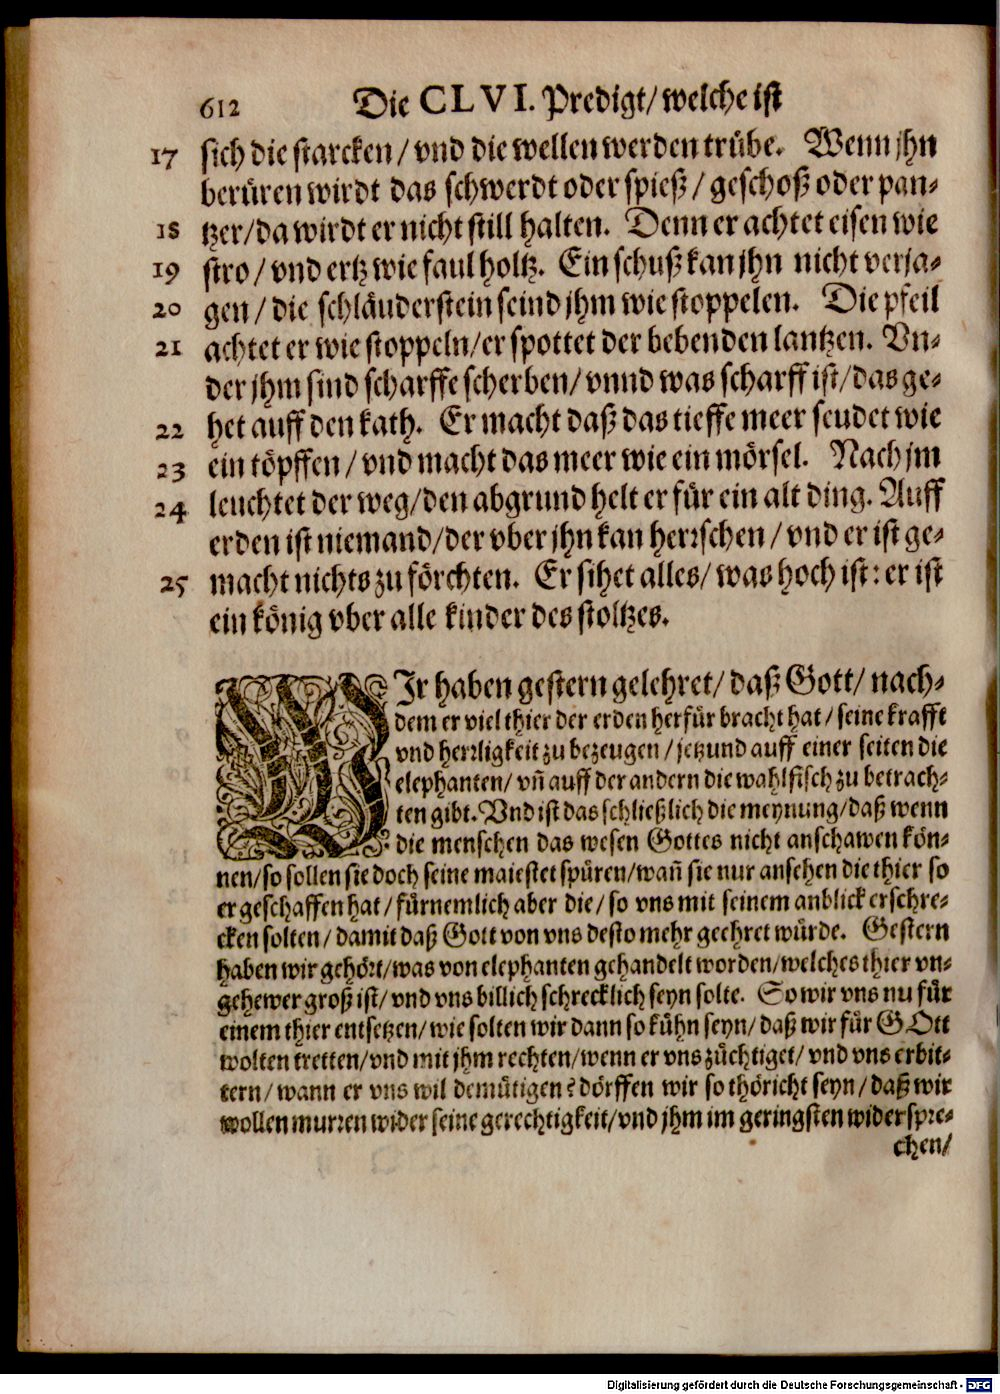 612 Die CLVI. Predigt/ welche ist
17 sich die starcken / vnd die wellen werden trübe. Wenn jhn
berüren wirdt das schwerdt oder spieß / geschoß oder pan-
18 tzer/ da wirdt er nicht still halten. Denn er achtet eisen wie
19 stro / vnd ertz wie faul holtz. Ein schuß kan jhn nicht verja-
20 gen / die schläuderstein seind jhm wie stoppelen. Die pfeil
21 achtet er wie stoppeln/ er spottet der bebenden lantzen. Vn-
der jhm sind scharffe scherben/ vnnd was scharff ist/ das ge-
22 het auff den kath. Er macht daß das tieffe meer seudet wie
23 ein töpffen / vnd macht das meer wie ein mörsel. Nach jm
24 leuchtet der weg/ den abgrund helt er für ein alt ding. Auff
erden ist niemand/ der vber jhn kan herrschen / vnd er ist ge-
25 macht nichts zu förchten. Er sihet alles/ was hoch ist: er ist
ein könig vber alle kinder des stoltzes.
WIr haben gestern gelehret/ daß Gott/ nach-
dem er viel thier der erden herfür bracht hat / seine krafft
vnd herrligkeit zu bezeugen / jetzund auff einer seiten die
elephanten/ vñ auff der andern die wahlfisch zu betrach-
ten gibt. Vnd ist das schließlich die meynung/ daß wenn
die menschen das wesen Gottes nicht anschawen kön-
nen/ so sollen sie doch seine maiestet spüren/ wañ sie nur ansehen die thier so
er geschaffen hat / fürnemlich aber die / so vns mit seinem anblick erschre-
cken solten / damit daß Gott von vns desto mehr geehret würde. Gestern
haben wir gehört/ was von elephanten gehandelt worden/ welches thier vn-
gehewer groß ist/ vnd vns billich schrecklich seyn solte. So wir vns nu für
einem thier entsetzen/ wie solten wir dann so kühn seyn/ daß wir für GOtt
wolten tretten/ vnd mit jhm rechten/ wenn er vns züchtiget/ vnd vns erbit-
tern / wann er vns wil demütigen? dörffen wir so thöricht seyn / daß wir
wollen murren wider seine gerechtigkeit/ vnd jhm im geringsten widerspre-
chen/
Digitalisierung gefördert durch die Deutsche Forschungsgemeinschaft - DFG